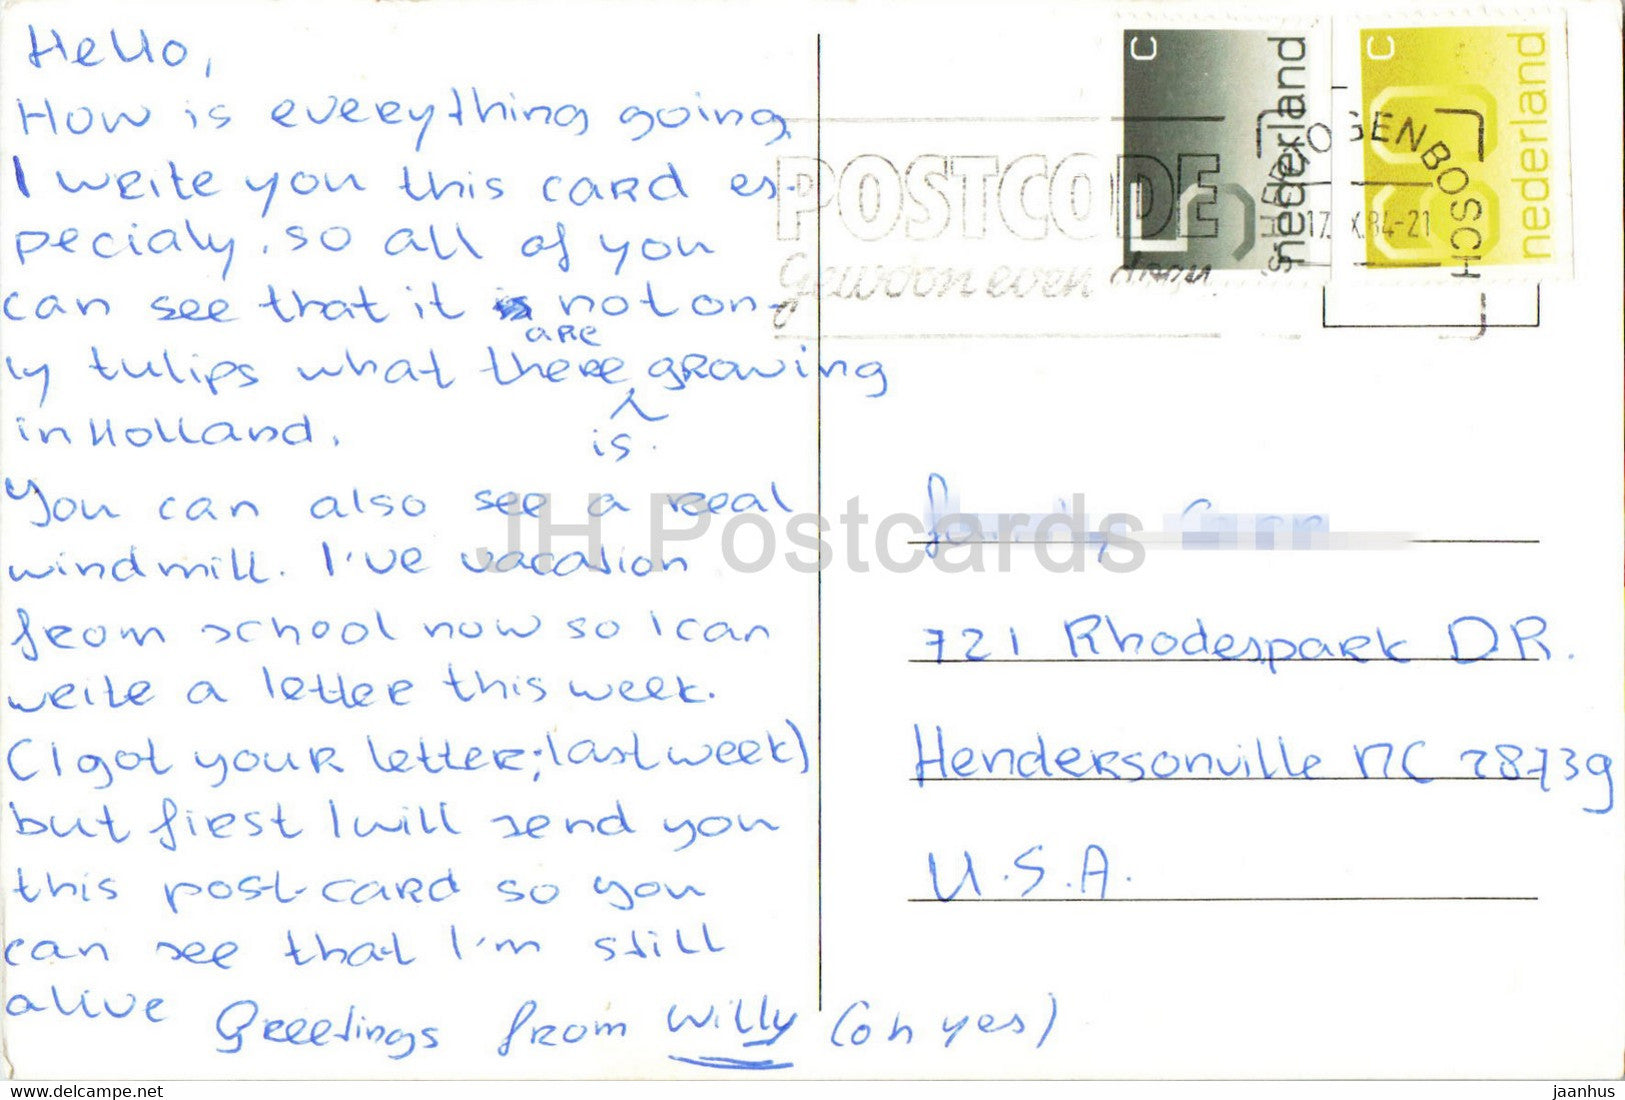 Hello,
How is everything going
I write you this card es-
pecialy, so all of you
can see that it is not on-
ly tulips what there growing
are
is.
in Holland.
You can also see a real
windmill. I've vacation
from school now so I can
write a letter this week.
(I got your letter; last week)
but first I will send you
this post-card so you
can see that I'm still
alive
Greetings from Willy (oh yes)
POSTCODE
Gewoon even doen
'S-HERTOGENBOSCH
17. X.84-21
C
nederland
C
nederland
721 Rhodespark DR.
Hendersonville NC 28739
U.S.A.
JH Postcards
https://www.delcampe.net
jaanhus